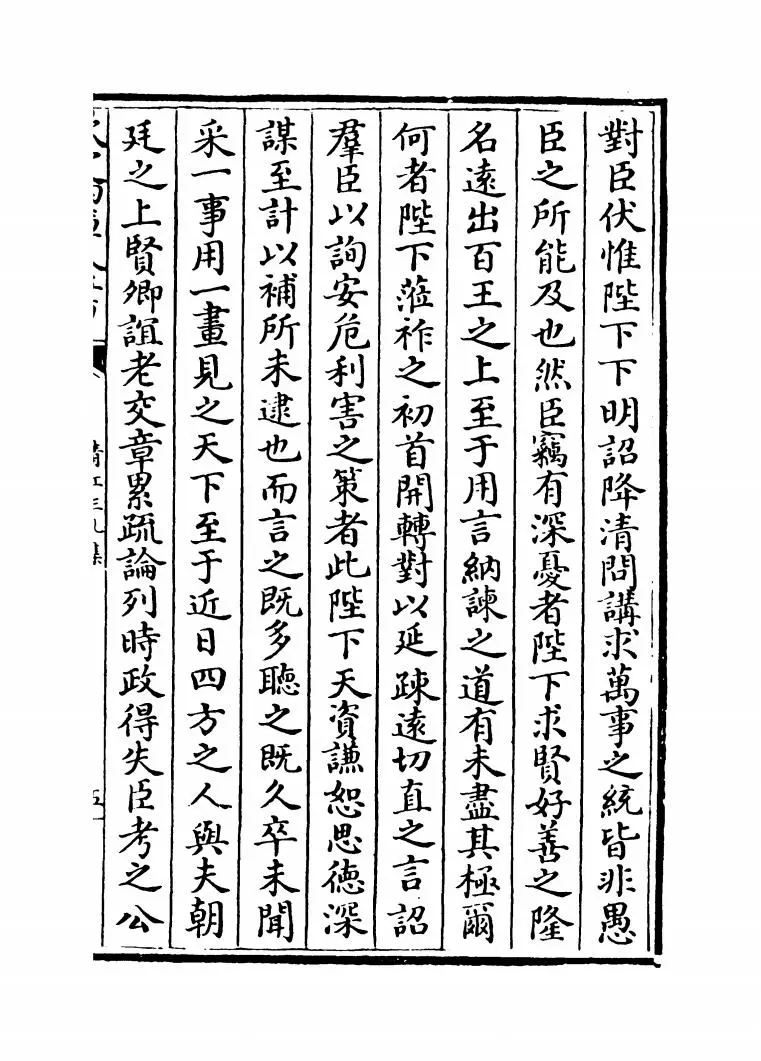 對臣伏惟陛下下明詔降清問講求萬事之統皆非愚
臣之所能及也然臣竊有深憂者陛下求賢好善之隆
名遠出百王之上至于用言納諫之道有未盡其極爾
何者陛下蒞祚之初首開轉對以延疎遠切直之言詔
羣臣以詢安危利害之策者此陛下天資謙恕思德深
謀至計以補所未逮也而言之既多聽之既久卒未聞
采一事用一畫見之天下至于近日四方之人與夫朝
廷之上賢卿誼老交章累疏論列時政得失臣考之公
清江三孔集
五